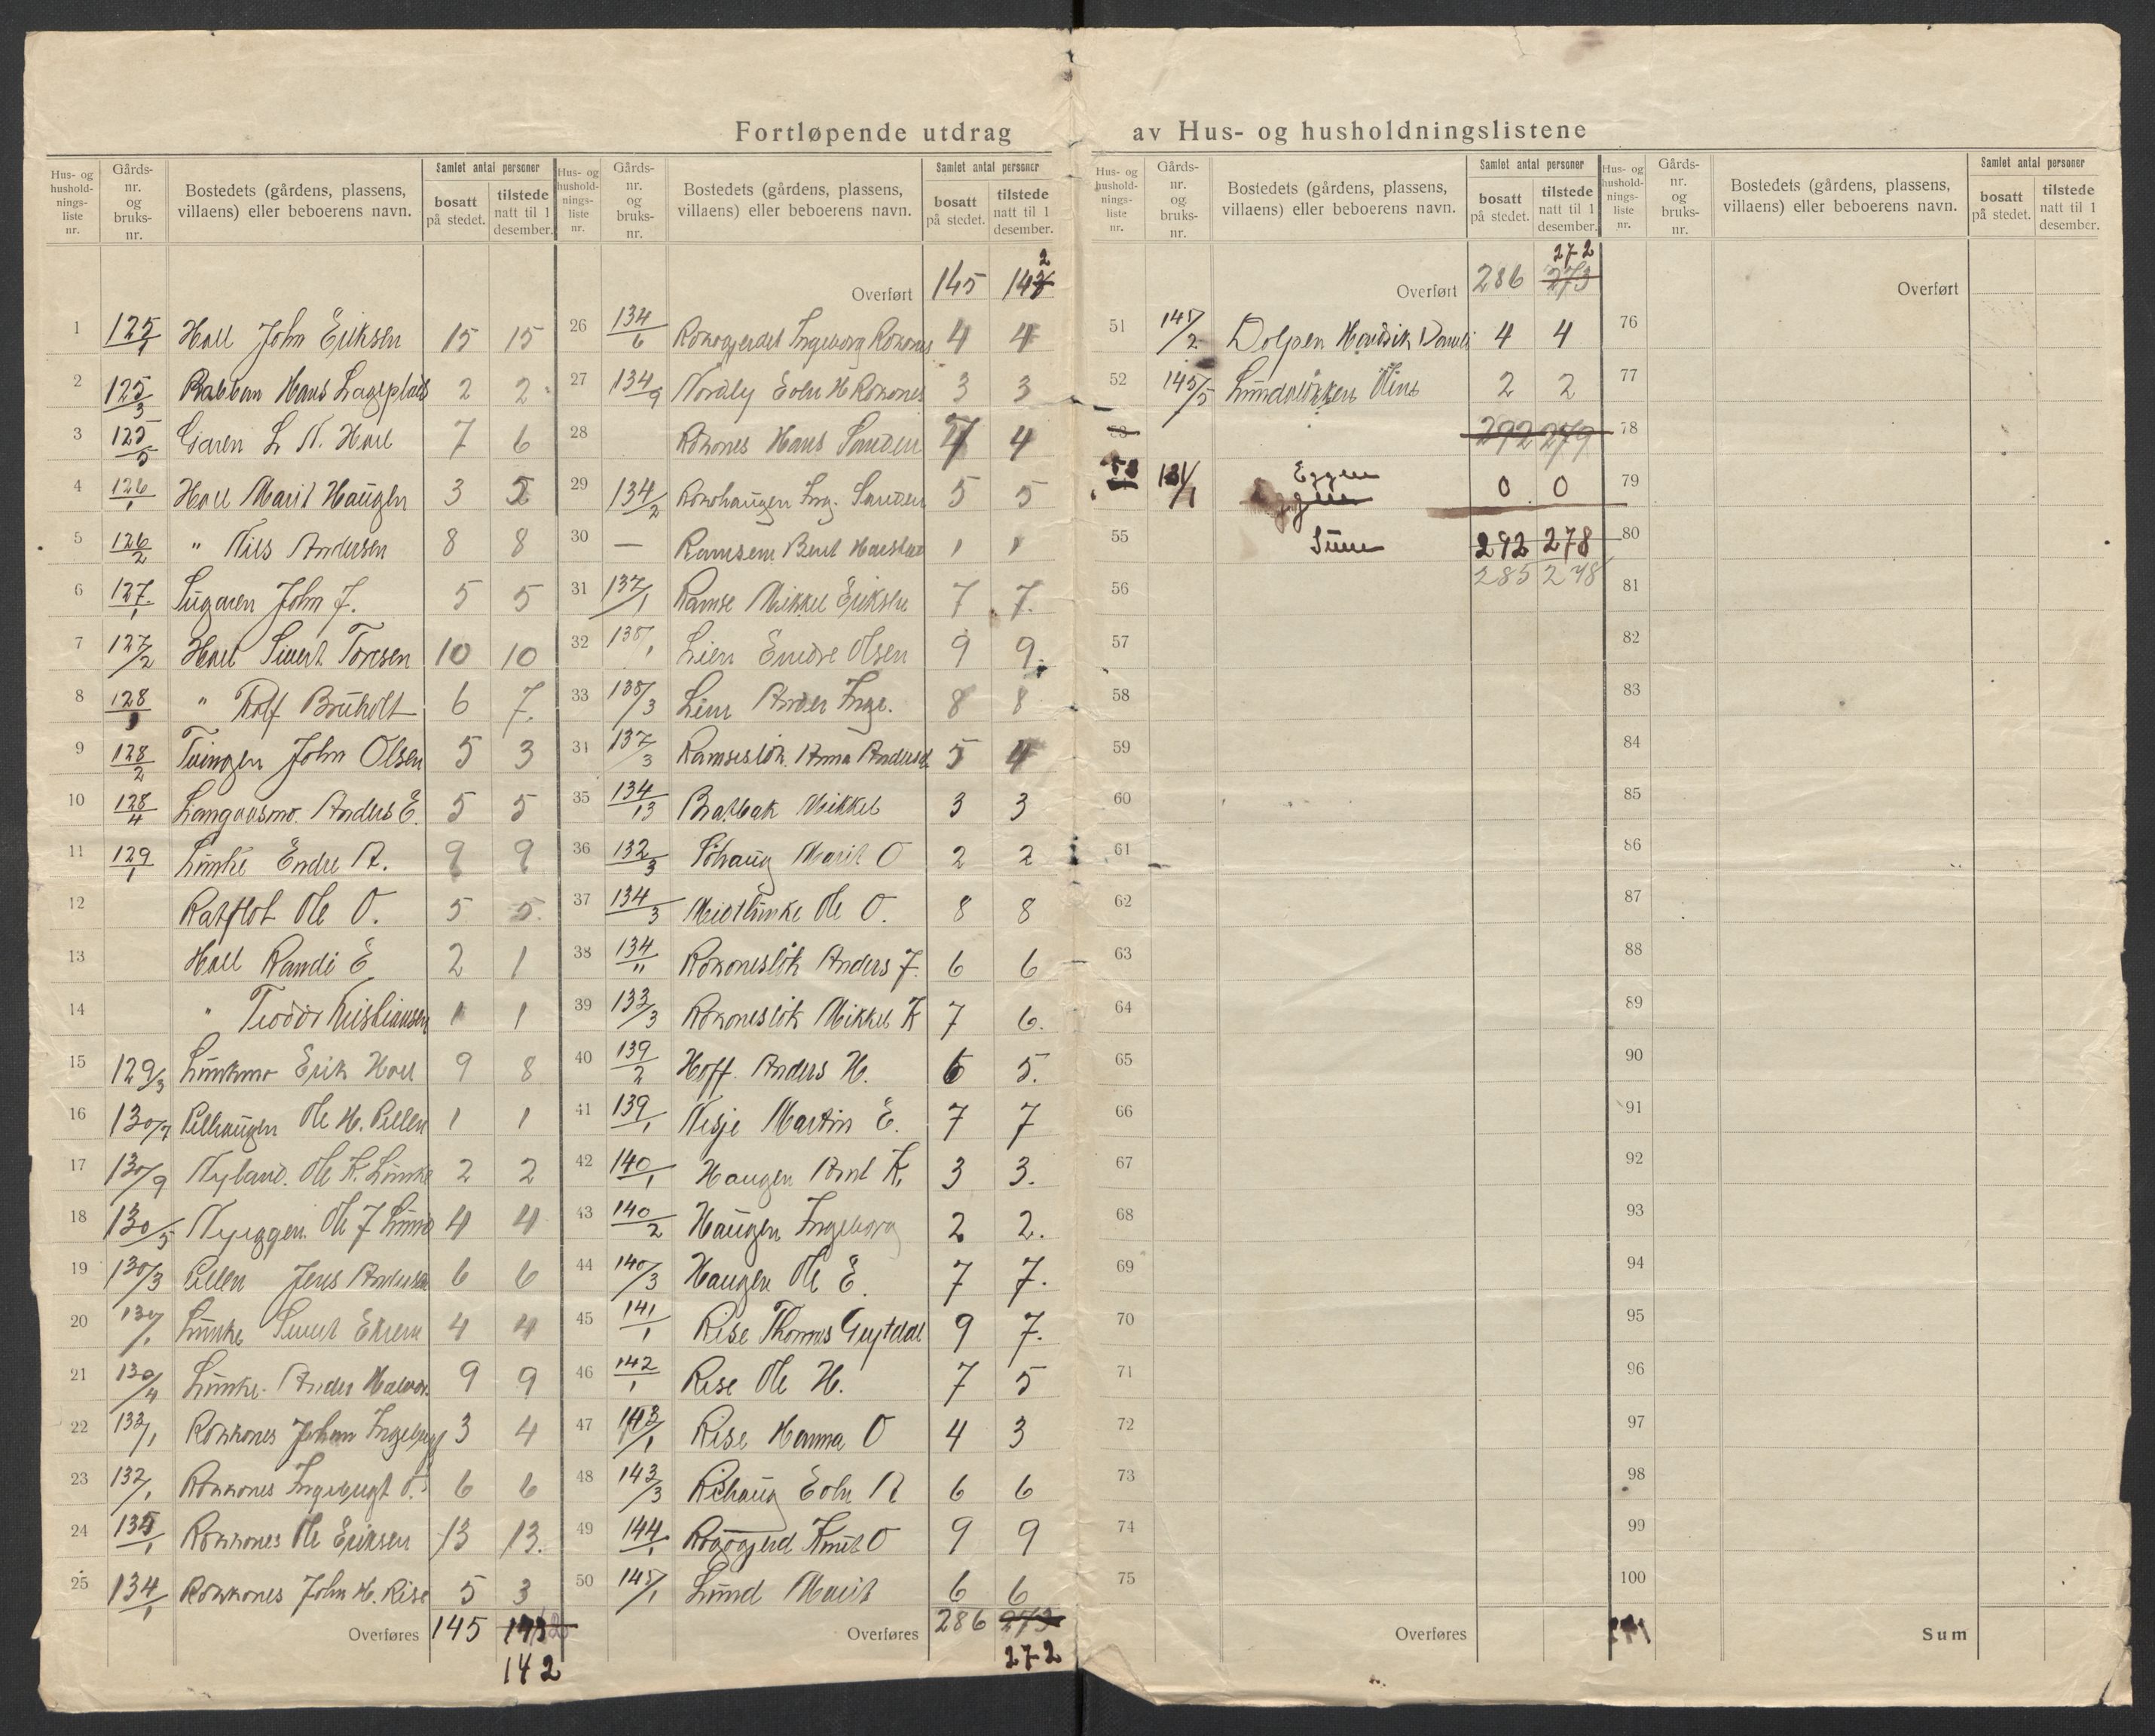 Fortløpende utdrag av Hus- og husholdningslistene
Hus- og hushold-nings-liste nr. Gårds-nr. og bruks-nr. Bostedets (gårdens, plassens, villaens) eller beboerens navn. Samlet antal personer bosatt på stedet. tilstede natt til 1 desember.
1 125/1 Hoel John Eriksen 15 15
2 125/3 Bakken Hans 2 2
3 125/5 L. N. Hoel 7 6
4 126/1 Hoel Marit Haugen 3 2
5 126/2 " Nils Andersen 8 8
6 127/1 John J. 5 5
7 127/2 Hoel Sivert Toresen 10 10
8 128/1 " Rolf Bruholt 6 7.
9 128/2 Tvingen John Olsen 5 3
10 128/4 Langaasmo Anders E. 5 5
11 129/1 Lunke Endre A. 9 9
12 Ratflot Ole O. 5 5.
13 Hoel Randi E 2 1
14 " Teodor Kristiansen 1 1
15 129/3 Lunkmo Erik Hoel 9 8
16 130/7 Pellhaugen Ole H. Pellen 1 1
17 130/9 Nyland. Ole K. Lunke 2 2
18 130/5 Nyeggen Ole J 4 4
19 130/3 Pellen Jens Andersen 6 6
20 130/1 Lunke Sivert 4 4
21 130/4 Lunke Anders Halvor. 9 9
22 133/1 Rokkones Johan 3 4
23 132/1 Rokkones Ingebrigt O. 6 6
24 135/1 Rokkones Ole Eriksen 13 13.
25 134/1 Rokkones John H. Rise 5 3
Overføres 145 143
142
Hus- og hushold-nings-liste nr. Gårds-nr. og bruks-nr. Bostedets (gårdens, plassens, villaens) eller beboerens navn. Samlet antal personer bosatt på stedet. tilstede natt til 1 desember.
2
Overført 145 143
26 134/6 Ingeborg 4 4
27 134/9 Nordly Eolv H Rokones 3 3
28 Rokones Hans 7 4
29 134/2 Ing. 5 5
30 — Ramsem Berit 1 1
31 137/1 Ramse Mikkel Eriksen 7 7.
32 138/1 Lien Endre Olsen 9 9.
33 138/3 Lien Anders Inge. 8 8
34 137/3 Ramseslök. Anna Andersd. 5 4
35 134/13 Bakbak Mikkel 3 3
36 132/3 Marit O 2 2
37 134/3 Midtlunke Ole O. 8 8
38 134/11 Rokoneslök Anders J. 6 6
39 133/3 Rokoneslök Mikkel K 7 6.
40 139/2 Hoff. Anders H. 6 5.
41 139/1 Nesje Martin E. 7 7
42 140/1 Haugen Arnt K. 3 3.
43 140/2 Haugen Ingeborg 2 2.
44 140/3 Haugen Ole E. 7 7.
45 141/1 Rise Thomas 9 7.
46 142/1 Rise Ole H. 7 5
47 143/1 Rise Hanna O 4 3
48 143/3 Rihaug Eolv A 6 6
49 144/1 Knut O 9 9
50 145/1 Lund Marit 6 6
Overføres 286 273
272
Hus- og hushold-nings-liste nr. Gårds-nr. og bruks-nr. Bostedets (gårdens, plassens, villaens) eller beboerens navn. Samlet antal personer bosatt på stedet. tilstede natt til 1 desember.
272
Overført 286 273
51 145/2 Dolpen 4 4
52 145/5 Lundaløkken 2 2
53 292 279
53 131/1 Eggen 0 0
Eggen
55 Sum 292 278
285 278
56
57
58
59
60
61
62
63
64
65
66
67
68
69
70
71
72
73
74
75
Overføres
Hus- og hushold-nings-liste nr. Gårds-nr. og bruks-nr. Bostedets (gårdens, plassens, villaens) eller beboerens navn. Samlet antal personer bosatt på stedet. tilstede natt til 1 desember.
Overført
76
77
78
79
80
81
82
83
84
85
86
87
88
89
90
91
92
93
94
95
96
97
98
99
100
Sum